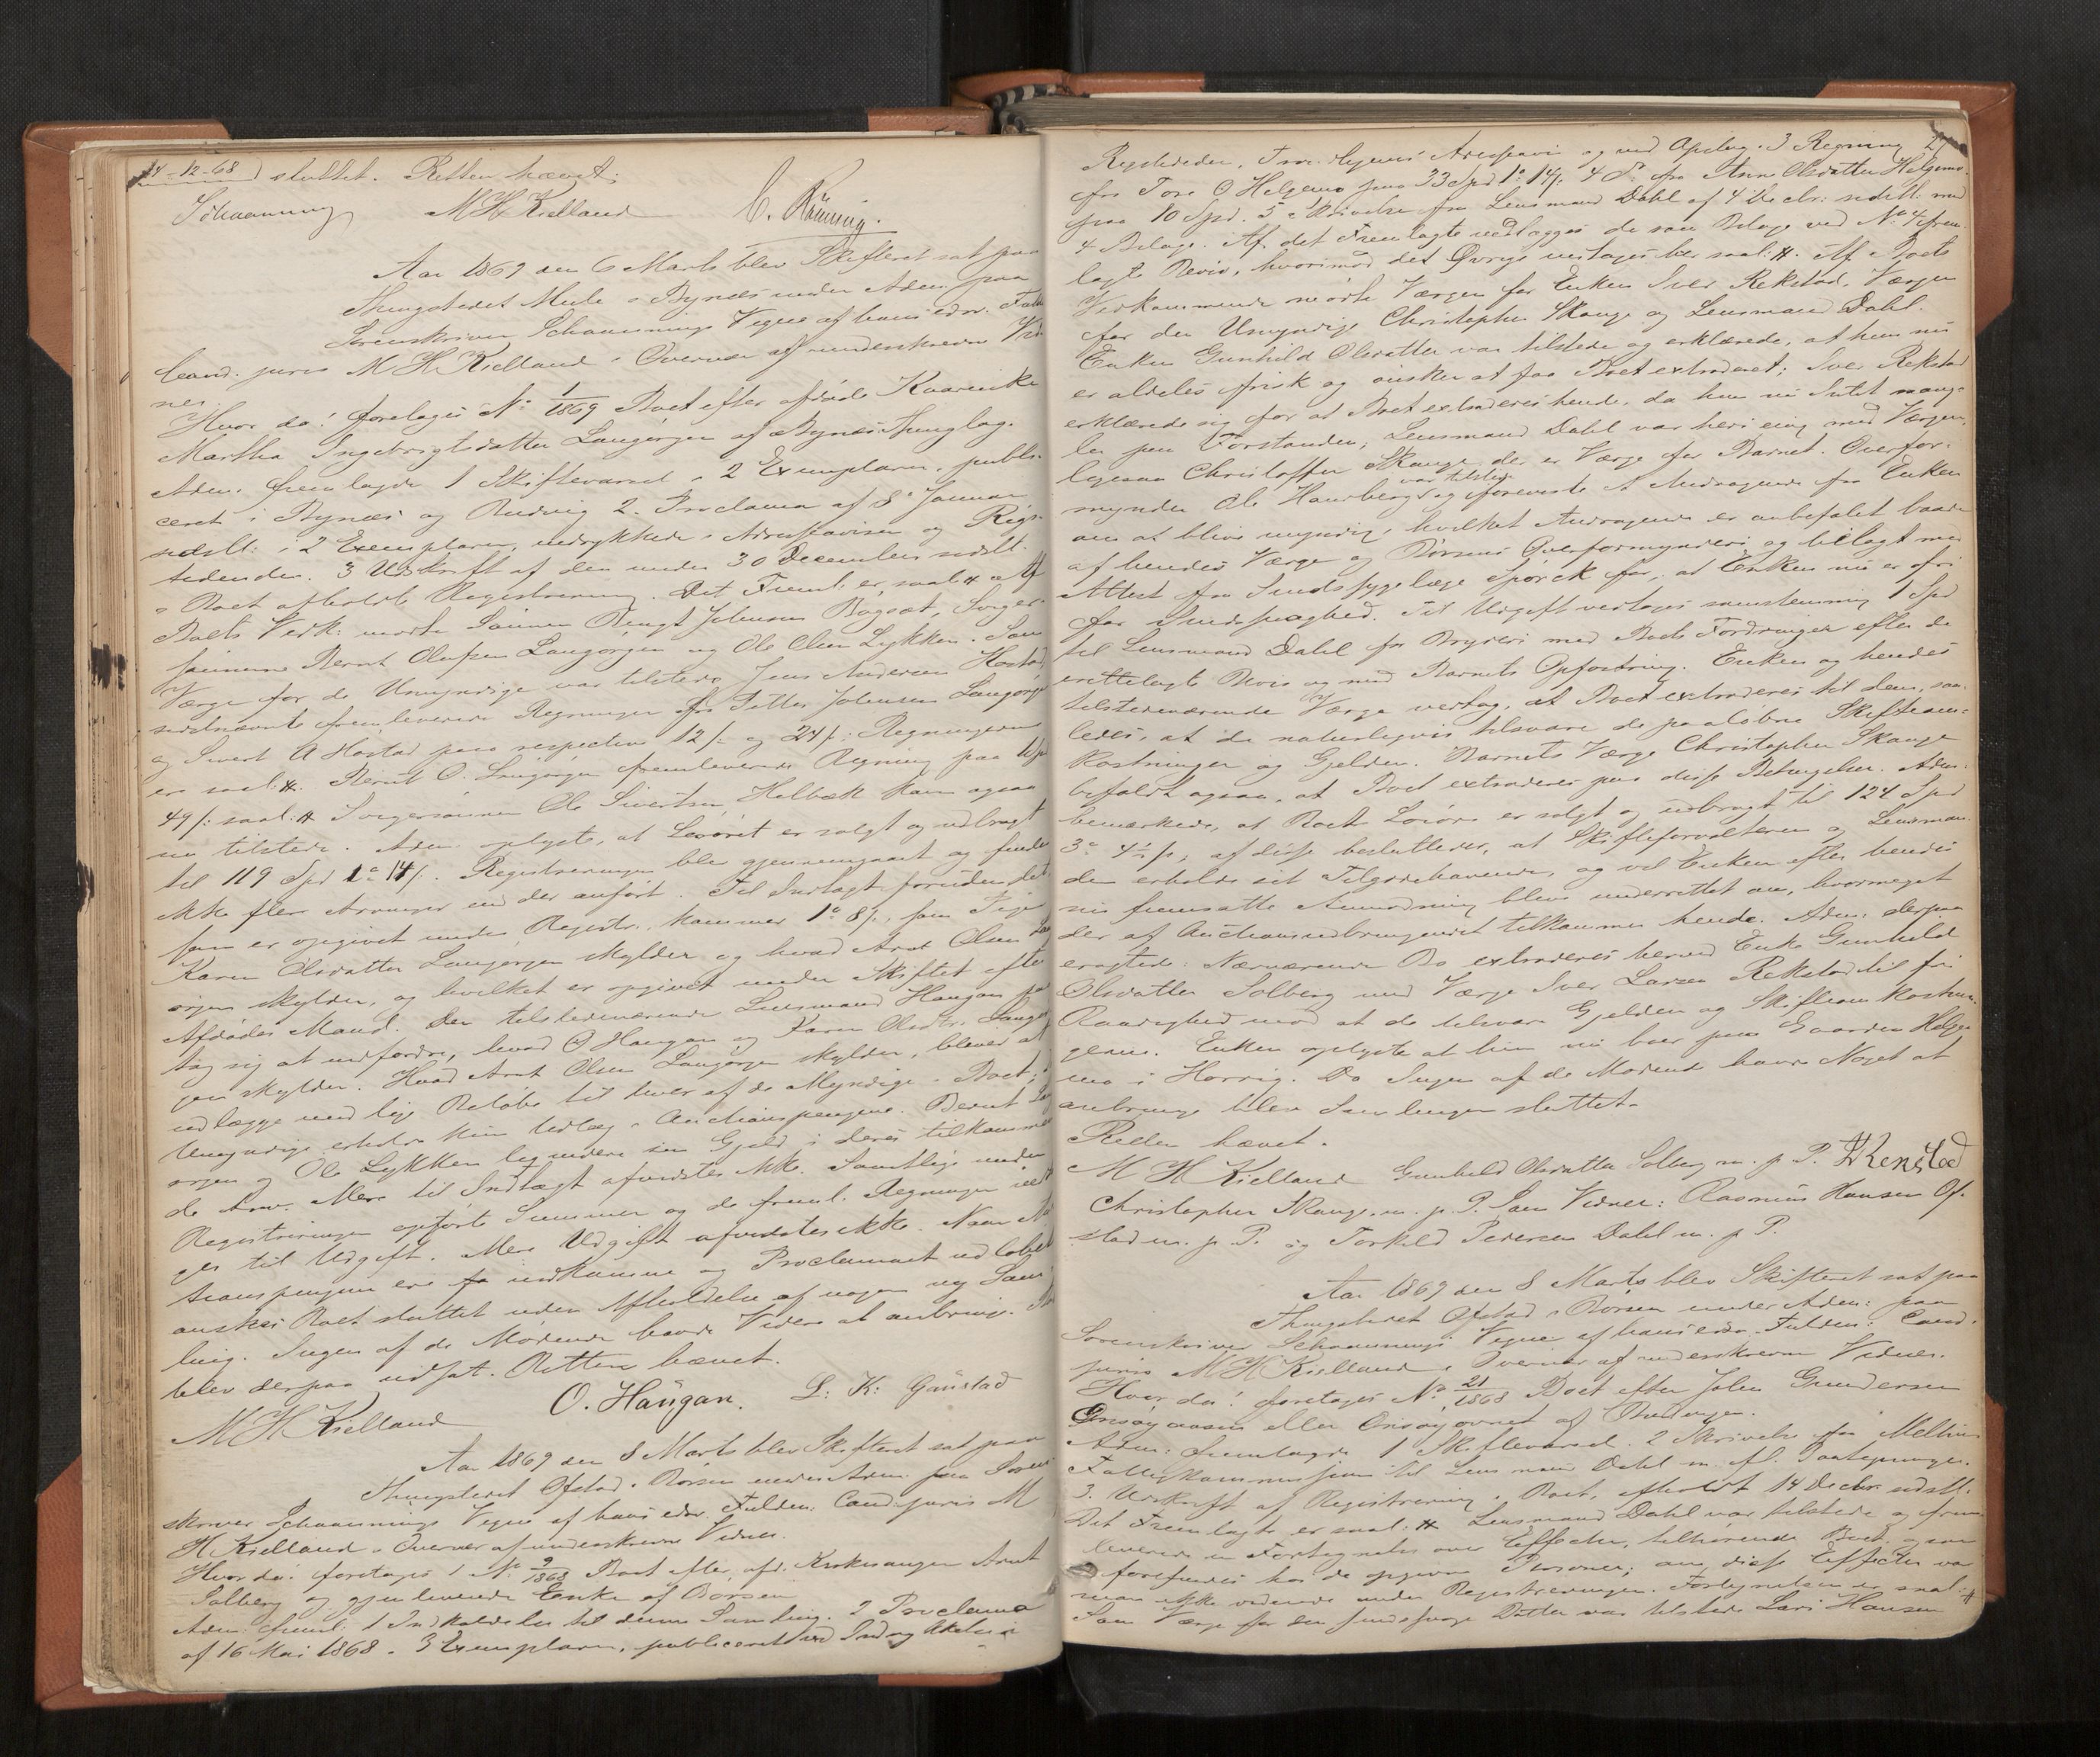 14-12-68 sluttet. Retten hævet.
Schaanning MHKielland C. Rønning.
Aar 1869 den 6 Marts blev Skifteret sat paa
Thingstedet Mule i Bynæs under Adm. paa
Sorenskriver Schaannings Vegne af hans edsv. Fuldm.
Cand. juris M H Kielland i Overvær af underskrevne Vid-
ner.
Hvor da: foretages No 1/1869 Boet efter afdøde Kaarenke
Martha Ingebrigtsdatter Langørgen af Bynæs Thinglag.
Adm. fremlagde 1 Skiftevarsel i 2 Exemplarer, publi-
ceret i Bynæs og Buvig 2. Proclama af 8 Januar
sidstl: i 2 Exemplarer, indrykkede i Adresseavisen og Rigs-
tidenden. 3 Udskrift af den under 30 December sidstl.
i Boet afholdte Registrering. Det Freml. er saal: # Af
Boets Vedk: mødte Sønnen Bengt Johnsen Bogsæt, Sviger-
sønnerne Bernt Olufsen Langørgen og Ole Olsen Lykken. Som
Værge for de Umyndige var tilstede Jens Andersen Høstad
sidstnævnte fremleverede Regninger fra Petter Johnsen Langørgen
og Sivert A Høstad paa respective 12 /: og 24 /: Regningerne
er saal: #. Bernt O. Langørgen fremleverede Regning paa
49 /: saal: # Svigersønnen Ole Sivertsen Holbæk kom ogsaa
nu tilstede. Adm. oplyste, at Løsøret er solgt og udbragt
til 119 Spd 1 o 14 /. Registreringen blev gjennemgaaet og findes
ikke flere Arvinger end der anført. Til Indtægt foruden det
som er opgivet under Registr., kommer 1 o 8 /, som Pige
Karen Olsdatter Langørgen skylder og hvad Arnt Olsen Lang-
ørgen skylder, og hvilket er opgivet under Skiftet efter
Afdødes Mand. Den tilstedeværende Lensmand Haugan paa
tog sig at indfordre, hvad O Haugan og Karen Olsdtr. Langør-
gen skylder. Hvad Arnt Olsen Langørgen skylder, bliver at
udlægge med lige Beløb til hver af de Myndige i Boet;
Umyndige erholde kun Udlæg i Auctionspengene. Bernt Lang-
ørgen og Ole Lykken lignidere sin Gjeld i deres tilkommen-
de Arv. Mere til Indtægt afvidstes ikke. Samtlige under
Registreringen opførte Summer og de freml. Regninger vedta-
ges til Udgift. Mere Udgift afvidstes ikke. Naar Auc-
tionspengene ere indkomne og Proclamaet udløbet
ønskes Boet sluttet uden Afholdelse af nogen ny Sam-
ling. Ingen af de Mødende havde Videre at anbringe.
blev derpaa udsat. Retten hævet.
M H Kielland O. Haugan. L: K: Gaustad
Aar 1869 den 8 Marts blev Skifteret sat paa
Thingstedet Ofstad i Børsen under Adm. paa Soren-
skriver Schaannings Vegne af hans edsv. Fuldm: Cand. juris M
H Kielland i Overvær af underskrevne Vidner.
Hvor da: foretages 1 No 9/1868 Boet efter afd. Kirkesanger Arnt
Solberg og gjenlevende Enke af Børsen
Adm. freml. 1 Indkaldelse til denne Samling. 2 Proclama
af 16 Mai 1868 i 3 Exemplarer, publiceret ved

Rigstidenden, Trondhjems Adresseavis og ved Opslag. 3 Regning 27
fra Tore O Helgemo paa 33 Spd 1 o 14 /. 4 Do fra Anne Olsdatter Helgemo
paa 10 Spd. 5 Skrivelse fra Lensmand Dahl af 4 Decbr: sidstl: med
4 Bilage. Af det Fremlagte vedlægges de som Bilage ved No 4 frem-
lagte Bevis, hvorimod det Øvrige vedtages her saal: #. Af Boets
Vedkommende mødte Værgen for Enken Iver Rekstad, Værgen
for den Umyndige Christopher Skauge og Lensmand Dahl.
Enken Gunhild Olsdatter var tilstede og erklærede, at hun nu
er aldeles frisk og ønsker at faa Boet extraderet; Iver Rekstad
erklærede sig for at Boet extraderes hende, da hun nu Intet mang-
ler paa Forstanden; Lensmand Dahl var heri enig med Værgen,
ligesaa Christoffer Skauge, der er Værge for Barnet. Overfor-
mynder Ole Hansberg var tilstede og foreviste et Andragende fra Enken
om at blive myndig, hvilket Andragende er anbefalet baade
af hendes Værge og Børsens Overformynderi og bilagt med
Attest fra Sindssygelæge Spørck for, at Enken nu er fri
for Sindssyghed. Til Udgift vedtages samstemmig 1 Spd
til Lensmand Dahl for Bryderi med Boets Fordringer efter de
irettelagte Bevis og med Barnets Opfostring. Enken og hendes
tilstedeværende Værge vedtog, at Boet extraderes til dem, saa-
ledes, at de naturligvis tilsvare de paaløbne Skifteom-
kostninger og Gjelden. Barnets Værge Christopher Skauge
bifaldt ogsaa, at Boet extraderes paa disse Betingelser. Adm:
bemærkede, at Boets Løsøre er solgt og udbragt til 124 Spd
3 o 4½ /:, af disse besluttedes, at Skifteforvalteren og Lensman-
den erholde sit Tilgodehavende, og vil Enken efter hendes
nu fremsatte Anmodning blive underrettet om, hvormeget
der af Auctionsudbringendet tilkommer hende. Adm: derpaa
eragtede: Nærværende Bo extraderes herved Enke Gunhild
Olsdatter Solberg med Værge Iver Larsen Rekstad til fri
Raadighed mod at de tilsvare Gjelden og Skifteomkostnin-
gerne. Enken oplyste at hun nu boer paa Gaarden Helge-
mo i Horrig. Da Ingen af de Mødende havde Noget at
anbringe blev Samlingen sluttet.
Retten hævet.
M H Kielland Gunhild Olsdatter Solberg m. p. P.
Christopher Skauge m. p. P. Som Vidner: Rasmus Hansen Of-
stad m. p. P. og Torkild Pedersen Dahl m. p P.
Aar 1869 den 8 Marts blev Skifteret sat paa
Thingstedet Ofstad i Børsen under Adm: paa
Sorenskriver Schaannings Vegne af hans edsv. Fuldm: Cand.
juris M H Kielland i Overvær af underskrevne Vidner.
Hvor da: foretages No 21/1868 Boet efter John Gundersen
Onsøyaasen eller Onsøyovnet af
Adm: fremlagde 1 Skiftevarsel. 2 Skrivelse fra Melhus
Fattigkommission til Lensmand Dahl m. fl. Paategninger.
3. Udskrift af Registrering i Boet, afholdt 14 Decbr sidstl.
Det Fremlagte er saal. # Lensmand Dahl var tilstede og frem-
leverede en Fortegnelse over Effecter, tilhørende Boet og som
forefindes hos de opgivne Personer; om disse Effecter var
man ikke vidende under Registreringen. Fortegnelsen er saal: #
Som Værge for den sindssvage Datter var tilstede Lars Hansen